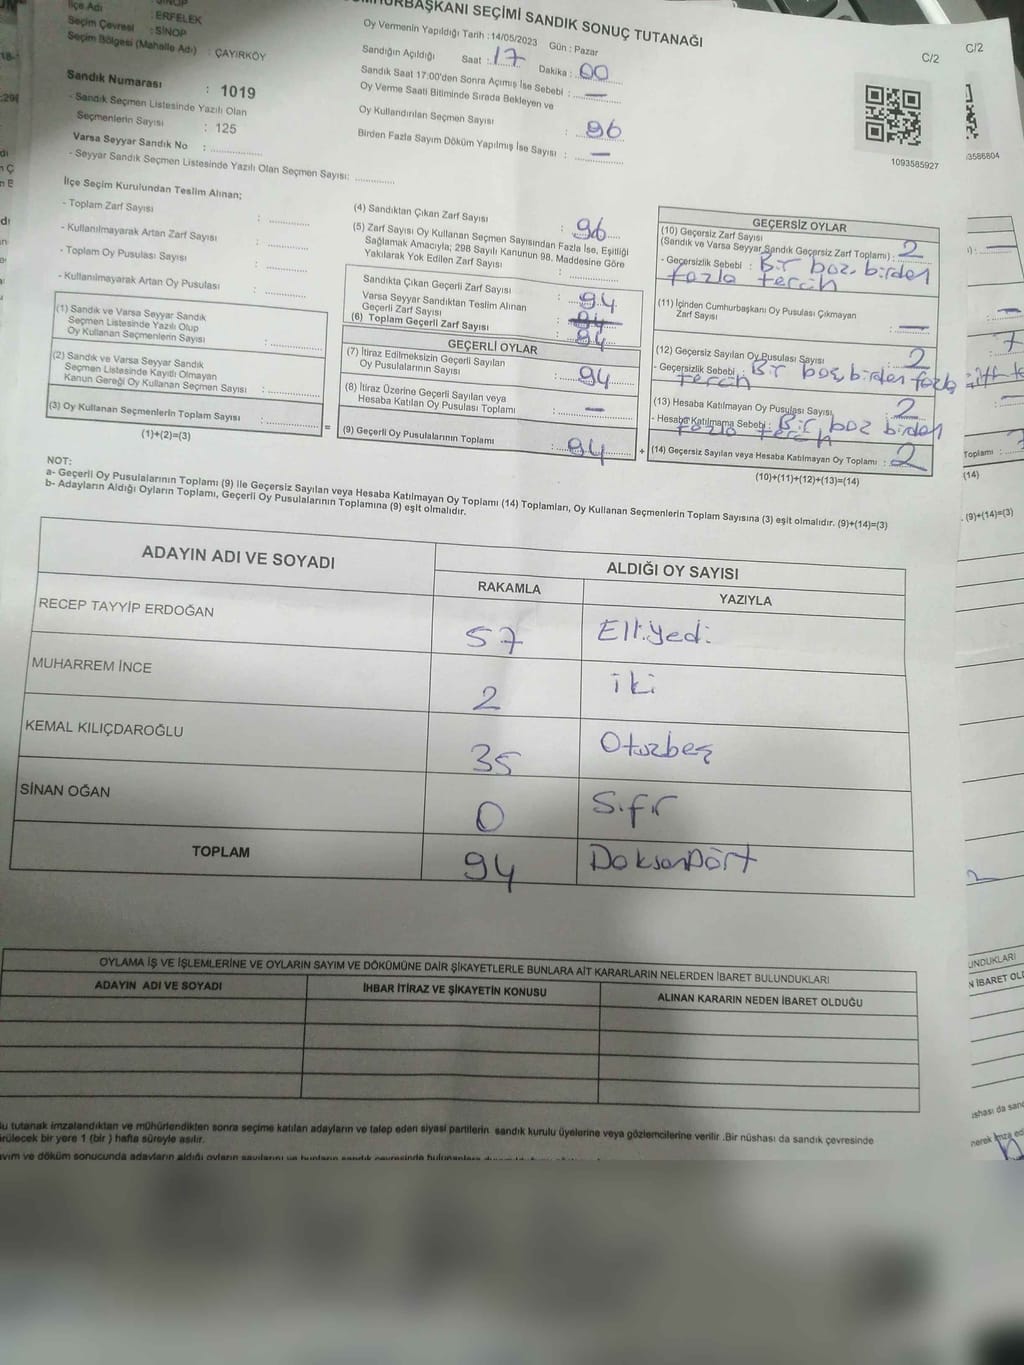 SİNOP
İlçe Adı : ERFELEK
Seçim Çevresi : SİNOP
Seçim Bölgesi (Mahalle Adı) : ÇAYIRKÖY
Sandık Numarası : 1019
- Sandık Seçmen Listesinde Yazılı Olan
Seçmenlerin Sayısı : 125
Varsa Seyyar Sandık No :
- Seyyar Sandık Seçmen Listesinde Yazılı Olan Seçmen Sayısı:
BAŞKANI SEÇİMİ SANDIK SONUÇ TUTANAĞI
Oy Vermenin Yapıldığı Tarih :14/05/2023 Gün : Pazar
Sandığın Açıldığı Saat : 17 Dakika : 00
Sandık Saat 17:00'den Sonra Açımış İse Sebebi : —
Oy Verme Saati Bitiminde Sırada Bekleyen ve
Oy Kullandırılan Seçmen Sayısı : 96
Birden Fazla Sayım Döküm Yapılmış İse Sayısı : —
C/2
C/2
1093585927
3586804
İlçe Seçim Kurulundan Teslim Alınan;
- Toplam Zarf Sayısı :
- Kullanılmayarak Artan Zarf Sayısı :
- Toplam Oy Pusulası Sayısı :
- Kullanılmayarak Artan Oy Pusulası :
(1) Sandık ve Varsa Seyyar Sandık
Seçmen Listesinde Yazılı Olup
Oy Kullanan Seçmenlerin Sayısı :
(2) Sandık ve Varsa Seyyar Sandık
Seçmen Listesinde Kayıtlı Olmayan
Kanun Gereği Oy Kullanan Seçmen Sayısı :
(3) Oy Kullanan Seçmenlerin Toplam Sayısı :
(1)+(2)=(3)
=
(4) Sandıktan Çıkan Zarf Sayısı : 96
(5) Zarf Sayısı Oy Kullanan Seçmen Sayısından Fazla İse, Eşitliği
Sağlamak Amacıyla; 298 Sayılı Kanunun 98. Maddesine Göre
Yakılarak Yok Edilen Zarf Sayısı :
Sandıkta Çıkan Geçerli Zarf Sayısı : 94
Varsa Seyyar Sandıktan Teslim Alınan
Geçerli Zarf Sayısı : 94
(6) Toplam Geçerli Zarf Sayısı : 94
GEÇERLİ OYLAR
(7) İtiraz Edilmeksizin Geçerli Sayılan
Oy Pusulalarının Sayısı : 94
(8) İtiraz Üzerine Geçerli Sayılan veya
Hesaba Katılan Oy Pusulası Toplamı : —
(9) Geçerli Oy Pusulalarının Toplamı : 94
+
GEÇERSİZ OYLAR
(10) Geçersiz Zarf Sayısı
(Sandık ve Varsa Seyyar Sandık Geçersiz Zarf Toplamı) : 2
- Geçersizlik Sebebi : Bir boz. birden
fazla tercih
(11) İçinden Cumhurbaşkanı Oy Pusulası Çıkmayan
Zarf Sayısı : —
(12) Geçersiz Sayılan Oy Pusulası Sayısı : 2
- Geçersizlik Sebebi : Bir boş, birden fazla
tercih
(13) Hesaba Katılmayan Oy Pusulası Sayısı 2
- Hesaba Katılmama Sebebi : Bir boz birden
fazla tercih
(14) Geçersiz Sayılan veya Hesaba Katılmayan Oy Toplamı : 2
(10)+(11)+(12)+(13)=(14)
Toplamı :
(14)
(9)+(14)=(3)
NOT:
a- Geçerli Oy Pusulalarının Toplamı (9) ile Geçersiz Sayılan veya Hesaba Katılmayan Oy Toplamı (14) Toplamları, Oy Kullanan Seçmenlerin Toplam Sayısına (3) eşit olmalıdır. (9)+(14)=(3)
b- Adayların Aldığı Oyların Toplamı, Geçerli Oy Pusulalarının Toplamına (9) eşit olmalıdır.
ADAYIN ADI VE SOYADI
ALDIĞI OY SAYISI
RAKAMLA YAZIYLA
RECEP TAYYİP ERDOĞAN 57 Elliyedi
MUHARREM İNCE 2 iki
KEMAL KILIÇDAROĞLU 35 Otuzbeş
SİNAN OĞAN 0 Sıfır
TOPLAM 94 DoksanDört
OYLAMA İŞ VE İŞLEMLERİNE VE OYLARIN SAYIM VE DÖKÜMÜNE DAİR ŞİKAYETLERLE BUNLARA AİT KARARLARIN NELERDEN İBARET BULUNDUKLARI
ADAYIN ADI VE SOYADI İHBAR İTİRAZ VE ŞİKAYETİN KONUSU ALINAN KARARIN NEDEN İBARET OLDUĞU
Bu tutanak imzalandıktan ve mühürlendikten sonra seçime katılan adayların ve talep eden siyasi partilerin sandık kurulu üyelerine veya gözlemcilerine verilir .Bir nüshası da sandık çevresinde
bir yere 1 (bir ) hafta süreyle asılır.
ve döküm sonucunda adayların aldığı oyların sayılarını